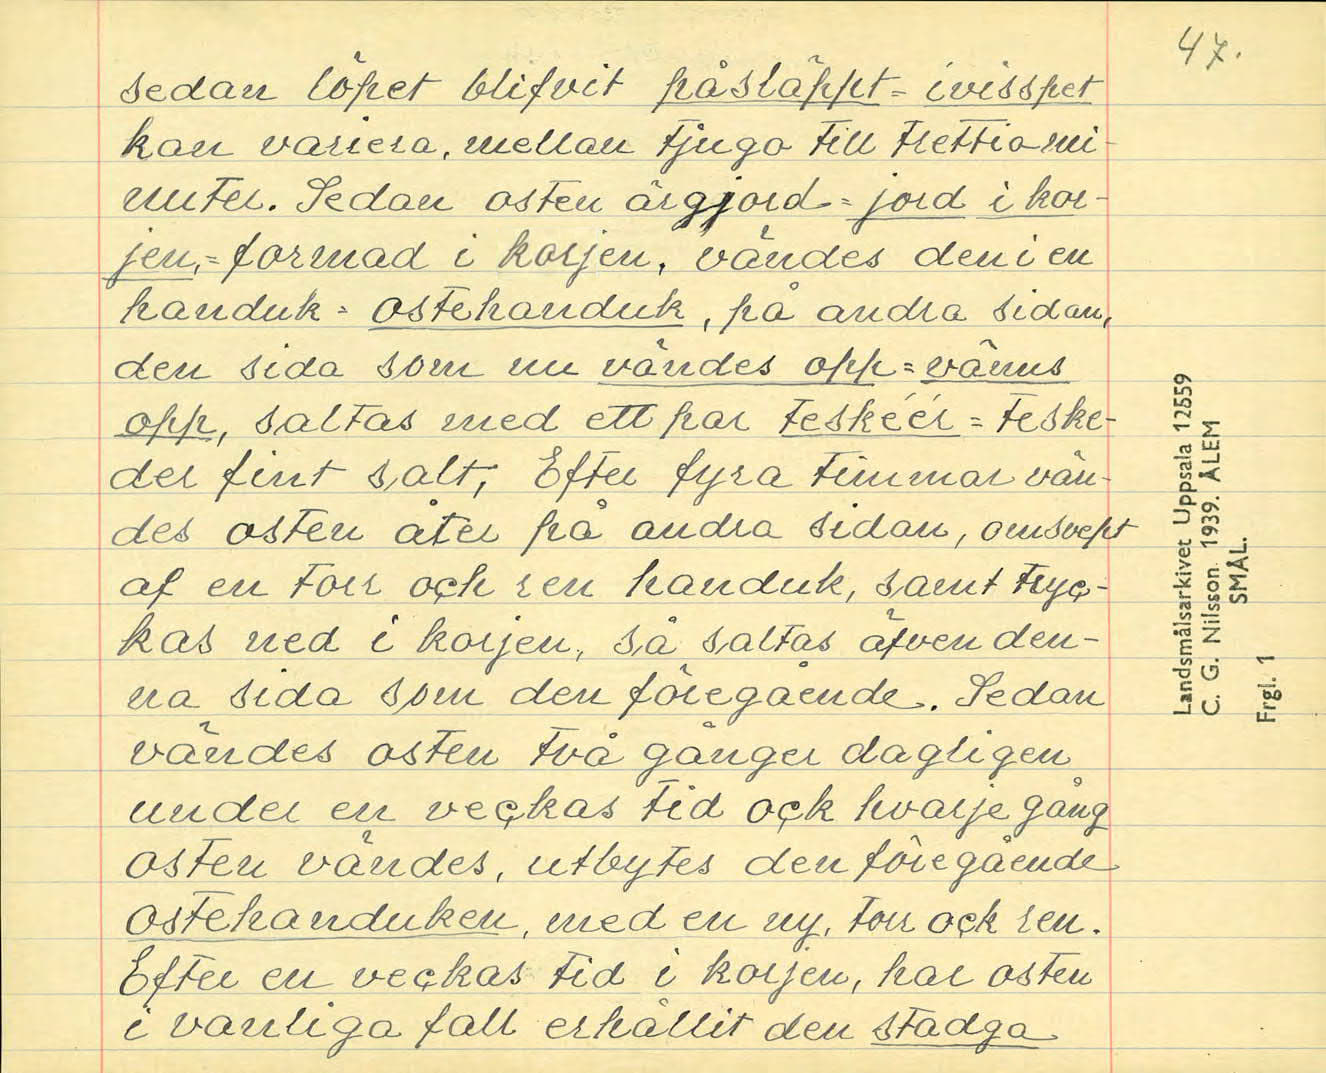 47.
sedan löpet blifvit påsläppt = ivisspet
kan variera, mellan tjugo till trettio mi-
nuter. Sedan osten är gjord = jord i kor-
jen, = formad i korjen, vändes den i en
handuk = ostehanduk, på andra sidan,
den sida som nu vändes opp = vänns
opp, saltas med ett par teskéér = teske-
der fint salt; Efter fyra timmar vän-
des osten åter på andra sidan, omsvept
af en torr och ren handuk, samt tryc-
kas ned i korjen, så saltas äfven den-
na sida som den föregående. Sedan
vändes osten två gånger dagligen
under en veckas tid ock hvarje gång
osten vändes, utbytes den föregående
ostehanduken, med en ny, torr ock ren.
Efter en veckas tid i korjen, har osten
i vanliga fall erhållit den stadga
Landsmålsarkivet Uppsala 12559
C. G. Nilsson. 1939. ÅLEM
SMÅL.
Frgl. 1